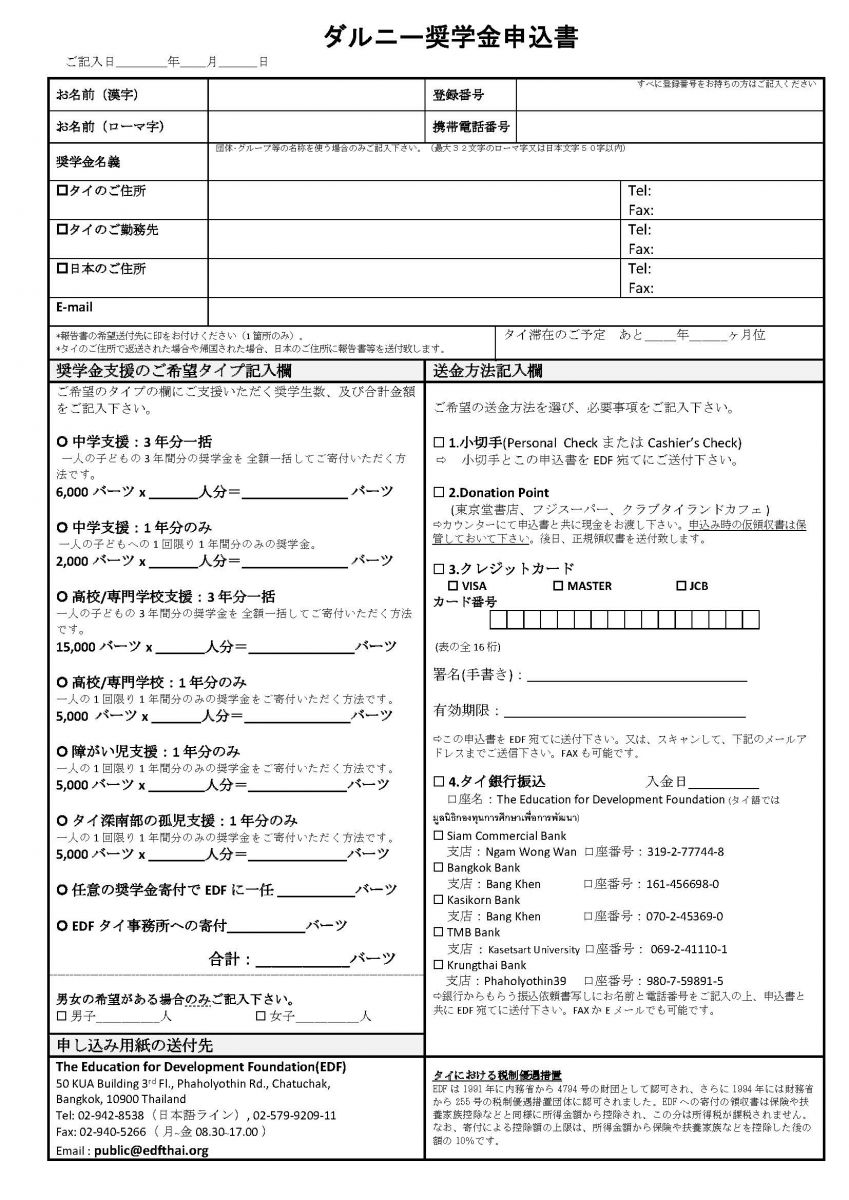 ダルニー奨学金申込書
ご記入日________年____月______日
お名前（漢字）
登録番号
すべに登録番号をお持ちの方はご記入ください
お名前（ローマ字）
携帯電話番号
奨学金名義
団体･グループ等の名称を使う場合のみご記入下さい。（最大３２文字のローマ字又は日本文字５０字以内）
☐タイのご住所
Tel:
Fax:
☐タイのご勤務先
Tel:
Fax:
☐日本のご住所
Tel:
Fax:
E-mail
*報告書の希望送付先に印をお付けください（1 箇所のみ）。
*タイのご住所で返送された場合や帰国された場合、日本のご住所に報告書等を送付致します。
タイ滞在のご予定　あと_____年______ヶ月位
奨学金支援のご希望タイプ記入欄
ご希望のタイプの欄にご支援いただく奨学生数、及び合計金額
をご記入下さい。
○ 中学支援：3 年分一括
一人の子どもの 3 年間分の奨学金を 全額一括してご寄付いただく方
法です。
6,000 バーツ x _______人分＝_______________ バーツ
○ 中学支援：1 年分のみ
一人の子どもへの 1 回限り 1 年間分のみの奨学金。
2,000 バーツ x _______人分＝_______________ バーツ
○ 高校/専門学校支援：3 年分一括
一人の子どもの 3 年間分の奨学金を 全額一括してご寄付いただく方法
です。
15,000 バーツ x _______人分＝_______________バーツ
○ 高校/専門学校：1 年分のみ
一人の 1 回限り 1 年間分のみの奨学金をご寄付いただく方法です。
5,000 バーツ x _______人分＝_______________バーツ
○ 障がい児支援：1 年分のみ
一人の 1 回限り 1 年間分のみの奨学金をご寄付いただく方法です。
5,000 バーツ x ________人分＝______________バーツ
○ タイ深南部の孤児支援：1 年分のみ
一人の 1 回限り 1 年間分のみの奨学金をご寄付いただく方法です。
5,000 バーツ x ________人分＝______________バーツ
○ 任意の奨学金寄付で EDF に一任 ___________バーツ
○ EDF タイ事務所への寄付___________バーツ
合計：_____________バーツ
男女の希望がある場合のみご記入下さい。
☐ 男子__________人
☐ 女子__________人
送金方法記入欄
ご希望の送金方法を選び、必要事項をご記入下さい。
☐ 1.小切手(Personal Check または Cashier’s Check)
⇨ 小切手とこの申込書を EDF 宛てにご送付下さい。
☐ 2.Donation Point
(東京堂書店、フジスーパー、クラブタイランドカフェ)
⇨カウンターにて申込書と共に現金をお渡し下さい。申込み時の仮領収書は保
管しておいて下さい。後日、正規領収書を送付致します。
☐ 3.クレジットカード
☐ VISA ☐ MASTER ☐ JCB
カード番号
(表の全 16 桁)
署名(手書き)：______________________________
有効期限：_________________________________
⇨この申込書を EDF 宛てに送付下さい。又は、スキャンして、下記のメールア
ドレスまでご送信下さい。FAX も可能です。
☐ 4.タイ銀行振込　入金日___________
口座名：The Education for Development Foundation (タイ語では
มูลนิธิกองทุนการศึกษาเพื่อการพัฒนา)
☐ Siam Commercial Bank
支店：Ngam Wong Wan 口座番号：319-2-77744-8
☐ Bangkok Bank
支店：Bang Khen 口座番号：161-456698-0
☐ Kasikorn Bank
支店：Bang Khen 口座番号：070-2-45369-0
☐ TMB Bank
支店：Kasetsart University 口座番号： 069-2-41110-1
☐ Krungthai Bank
支店：Phaholyothin39 口座番号：980-7-59891-5
⇨銀行からもらう振込依頼書写しにお名前と電話番号をご記入の上、申込書と
共に EDF 宛てに送付下さい。FAX か E メールでも可能です。
申し込み用紙の送付先
The Education for Development Foundation(EDF)
50 KUA Building 3rd Fl., Phaholyothin Rd., Chatuchak,
Bangkok, 10900 Thailand
Tel: 02-942-8538（日本語ライン）, 02-579-9209-11
Fax: 02-940-5266（ 月~金 08.30-17.00 ）
Email : public@edfthai.org
タイにおける税制優遇措置
EDF は 1991 年に内務省から 4794 号の財団として認可され、さらに 1994 年には財務省
から 255 号の税制優遇措置団体に認可されました。EDF への寄付の領収書は保険や扶
養家族控除などと同様に所得金額から控除され、この分は所得税が課税されません。
なお、寄付による控除額の上限は、所得金額から保険や扶養家族などを控除した後の
額の 10％です。